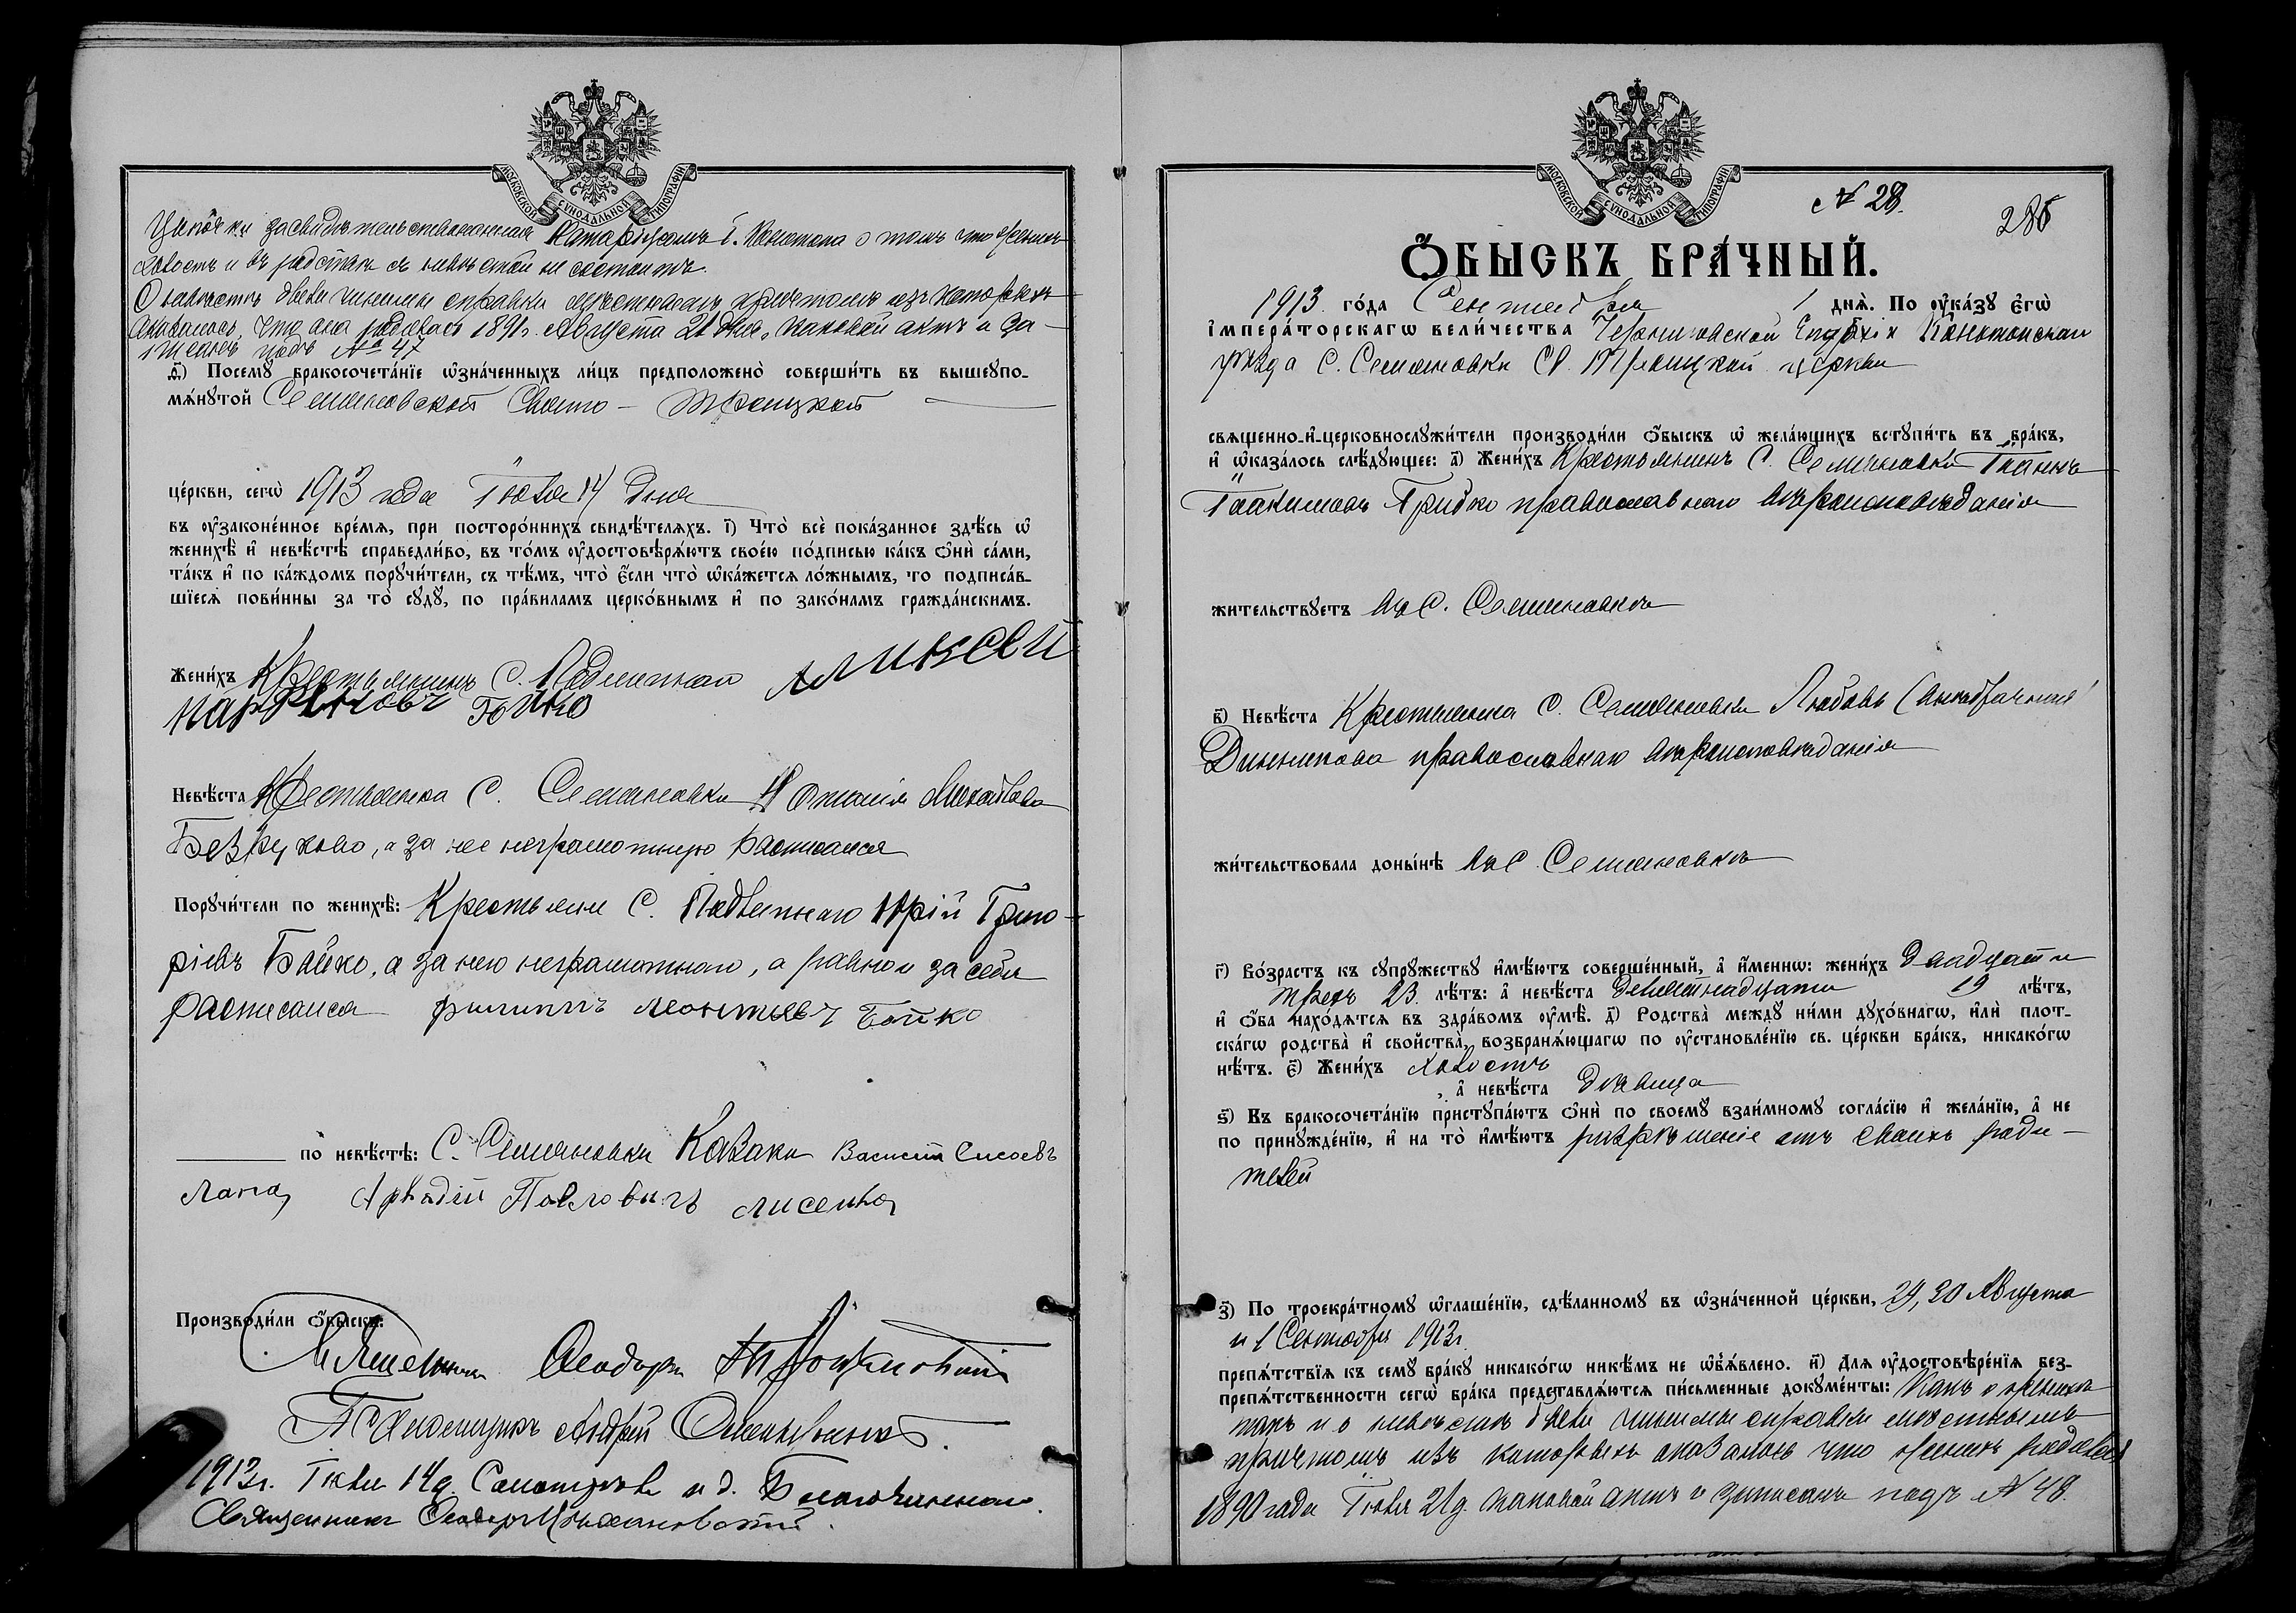 МОСКОВСКОЙ СѴНОДАЛЬНОЙ ТИПОГРАФІИ
засвидѣтельствованная г. Конотопа о томъ что женихъ
холостъ и въ родствѣ съ невѣстой не состоитъ.
О невѣстѣ справки причтомъ изъ которыхъ
оказалось, что она родилась 1891 г. Августа 21 дня, каковой актъ и за-
писанъ подъ № 47
ѳ҃) Посемꙋ̀ бракосочета́нїе ѡ҆зна́ченныхъ ли́цъ предположено̀ соверши́ть въ вышеꙋпо-
мѧ́нꙋтой Семяновской Свято-Троицкой
це́ркви, сегѡ̀ 1913 года Іюля 14 дня
въ ᲂу҆законе́нное вре́мѧ, при посторо́ннихъ свидѣ́телѧхъ. і҃) Что̀ всѐ пока́занное здѣ́сь ѡ҆
женихѣ̀ и҆ невѣ́стѣ справедли́во, въ то́мъ ᲂу҆достовѣрѧ́ютъ свое́ю по́дписью ка́къ ѻ҆нѝ са́ми,
та́къ и҆ по ка́ждомъ порꙋчи́тели, съ тѣ́мъ, что̀ є҆́сли что̀ ѡ҆ка́жетсѧ ло́жнымъ, то подписа́в-
шїесѧ пови́нны за то̀ сꙋдꙋ̀, по пра́виламъ церко́внымъ и҆ по зако́намъ гражда́нскимъ.
Жени́хъ Крестьянинъ С. Подлипнаго Аликсей
Бойко
Невѣ́ста Крестьянка С. Семяновки Михайлова
Безрукова, а за нее неграмотную расписался
Порꙋчи́тели по женихѣ̀: Крестьяне С. Подлипнаго Юрій Григо-
ріевъ Бойко, а за него неграмотнаго, а равно и за себя
расписался филиппъ леонтьевъ Бойко
по невѣ́стѣ: С. Семяновки Казаки Василій Сисоевъ
Лапа, Аркадій Павловичъ лисенко
Производи́ли ѻ҆́быскъ:
Ѳеодоръ
Псаломщикъ Андрей
1913 г. Іюля 14 д. Смотрѣлъ и. д. Благочиннаго
Священникъ Ѳеодоръ
МОСКОВСКОЙ СѴНОДАЛЬНОЙ ТИПОГРАФІИ
№ 28.
285
Ѻ҆́БЫСКЪ БРА́ЧНЫЙ.
1913 го́да Сентября 1 днѧ̀. По ᲂу҆ка́зꙋ є҆гѡ̀
і҆мпера́торскагѡ вели́чества Черниговской Епархіи Конотопскаго
уѣзда С. Семяновки Св. Троицкой церкви
свѧщенно-и҆-церковнослꙋжи́тели производи́ли ѻ҆́быскъ ѡ҆ жела́ющихъ встꙋпи́ть въ бра́къ,
и҆ ѡ҆каза́лось слѣ́дꙋющее: а҃) Жени́хъ Крестьянинъ С. Семяновки Іоаннъ
Іоакимовъ Грибко православнаго вѣроисповѣданія
жительствꙋетъ въ С. Семяновкѣ
в҃) Невѣ́ста Крестьянка С. Семяновки Любовь (внѣбрачная)
православнаго вѣроисповѣданія
жи́тельствовала доны́нѣ въ С. Семяновкѣ
г҃) Во́зрастъ къ сꙋпрꙋ́жествꙋ и҆мѣ́ютъ соверше́нный, а҆ и҆́меннѡ: жени́хъ двадцати
трехъ 23. лѣ́тъ: а҆ невѣ́ста девятнадцати 19 лѣ́тъ,
и҆ ѻ҆́ба нахо́дѧтсѧ въ здра́вомъ ᲂу҆мѣ̀. д҃) Родства̀ междꙋ̀ ни́ми дꙋхо́внагѡ, и҆лѝ плот-
ска́гѡ родства̀ и҆ свойства̀, возбранѧ́ющагѡ по ᲂу҆становле́нїю св. це́ркви бра́къ, никако́гѡ
нѣ́тъ. є҃) Жени́хъ холостъ
, а҆ невѣ́ста дѣвица
ѕ҃) Къ бракосочета́нїю пристꙋпа́ютъ ѻ҆нѝ по своемꙋ̀ взаи́мномꙋ согла́сїю и҆ жела́нїю, а҆ не
по принꙋжде́нїю, и҆ на то̀ и҆мѣ́ютъ разрѣшеніе отъ своихъ роди-
телей
з҃) По троекра́тномꙋ ѡ҆глаше́нїю, сдѣ́ланномꙋ въ ѡ҆зна́ченной це́ркви, 29, 30 Августа
и 1 Сентября 1913 г.
препѧ́тствїѧ къ семꙋ̀ бра́кꙋ никако́гѡ никѣ́мъ не ѡ҆б̾ѧ́влено. и҃) Длѧ ᲂу҆достовѣре́нїѧ без-
препѧ́тственности сегѡ̀ бра́ка представлѧ́ютсѧ пи́сьменные докꙋме́нты: Какъ о женихѣ
такъ и о невѣстѣ были чинимы справки мѣстнымъ
причтомъ изъ которыхъ оказалось что женихъ родился
1890 года Іюля 21 д. каковой актъ и записанъ подъ № 48.